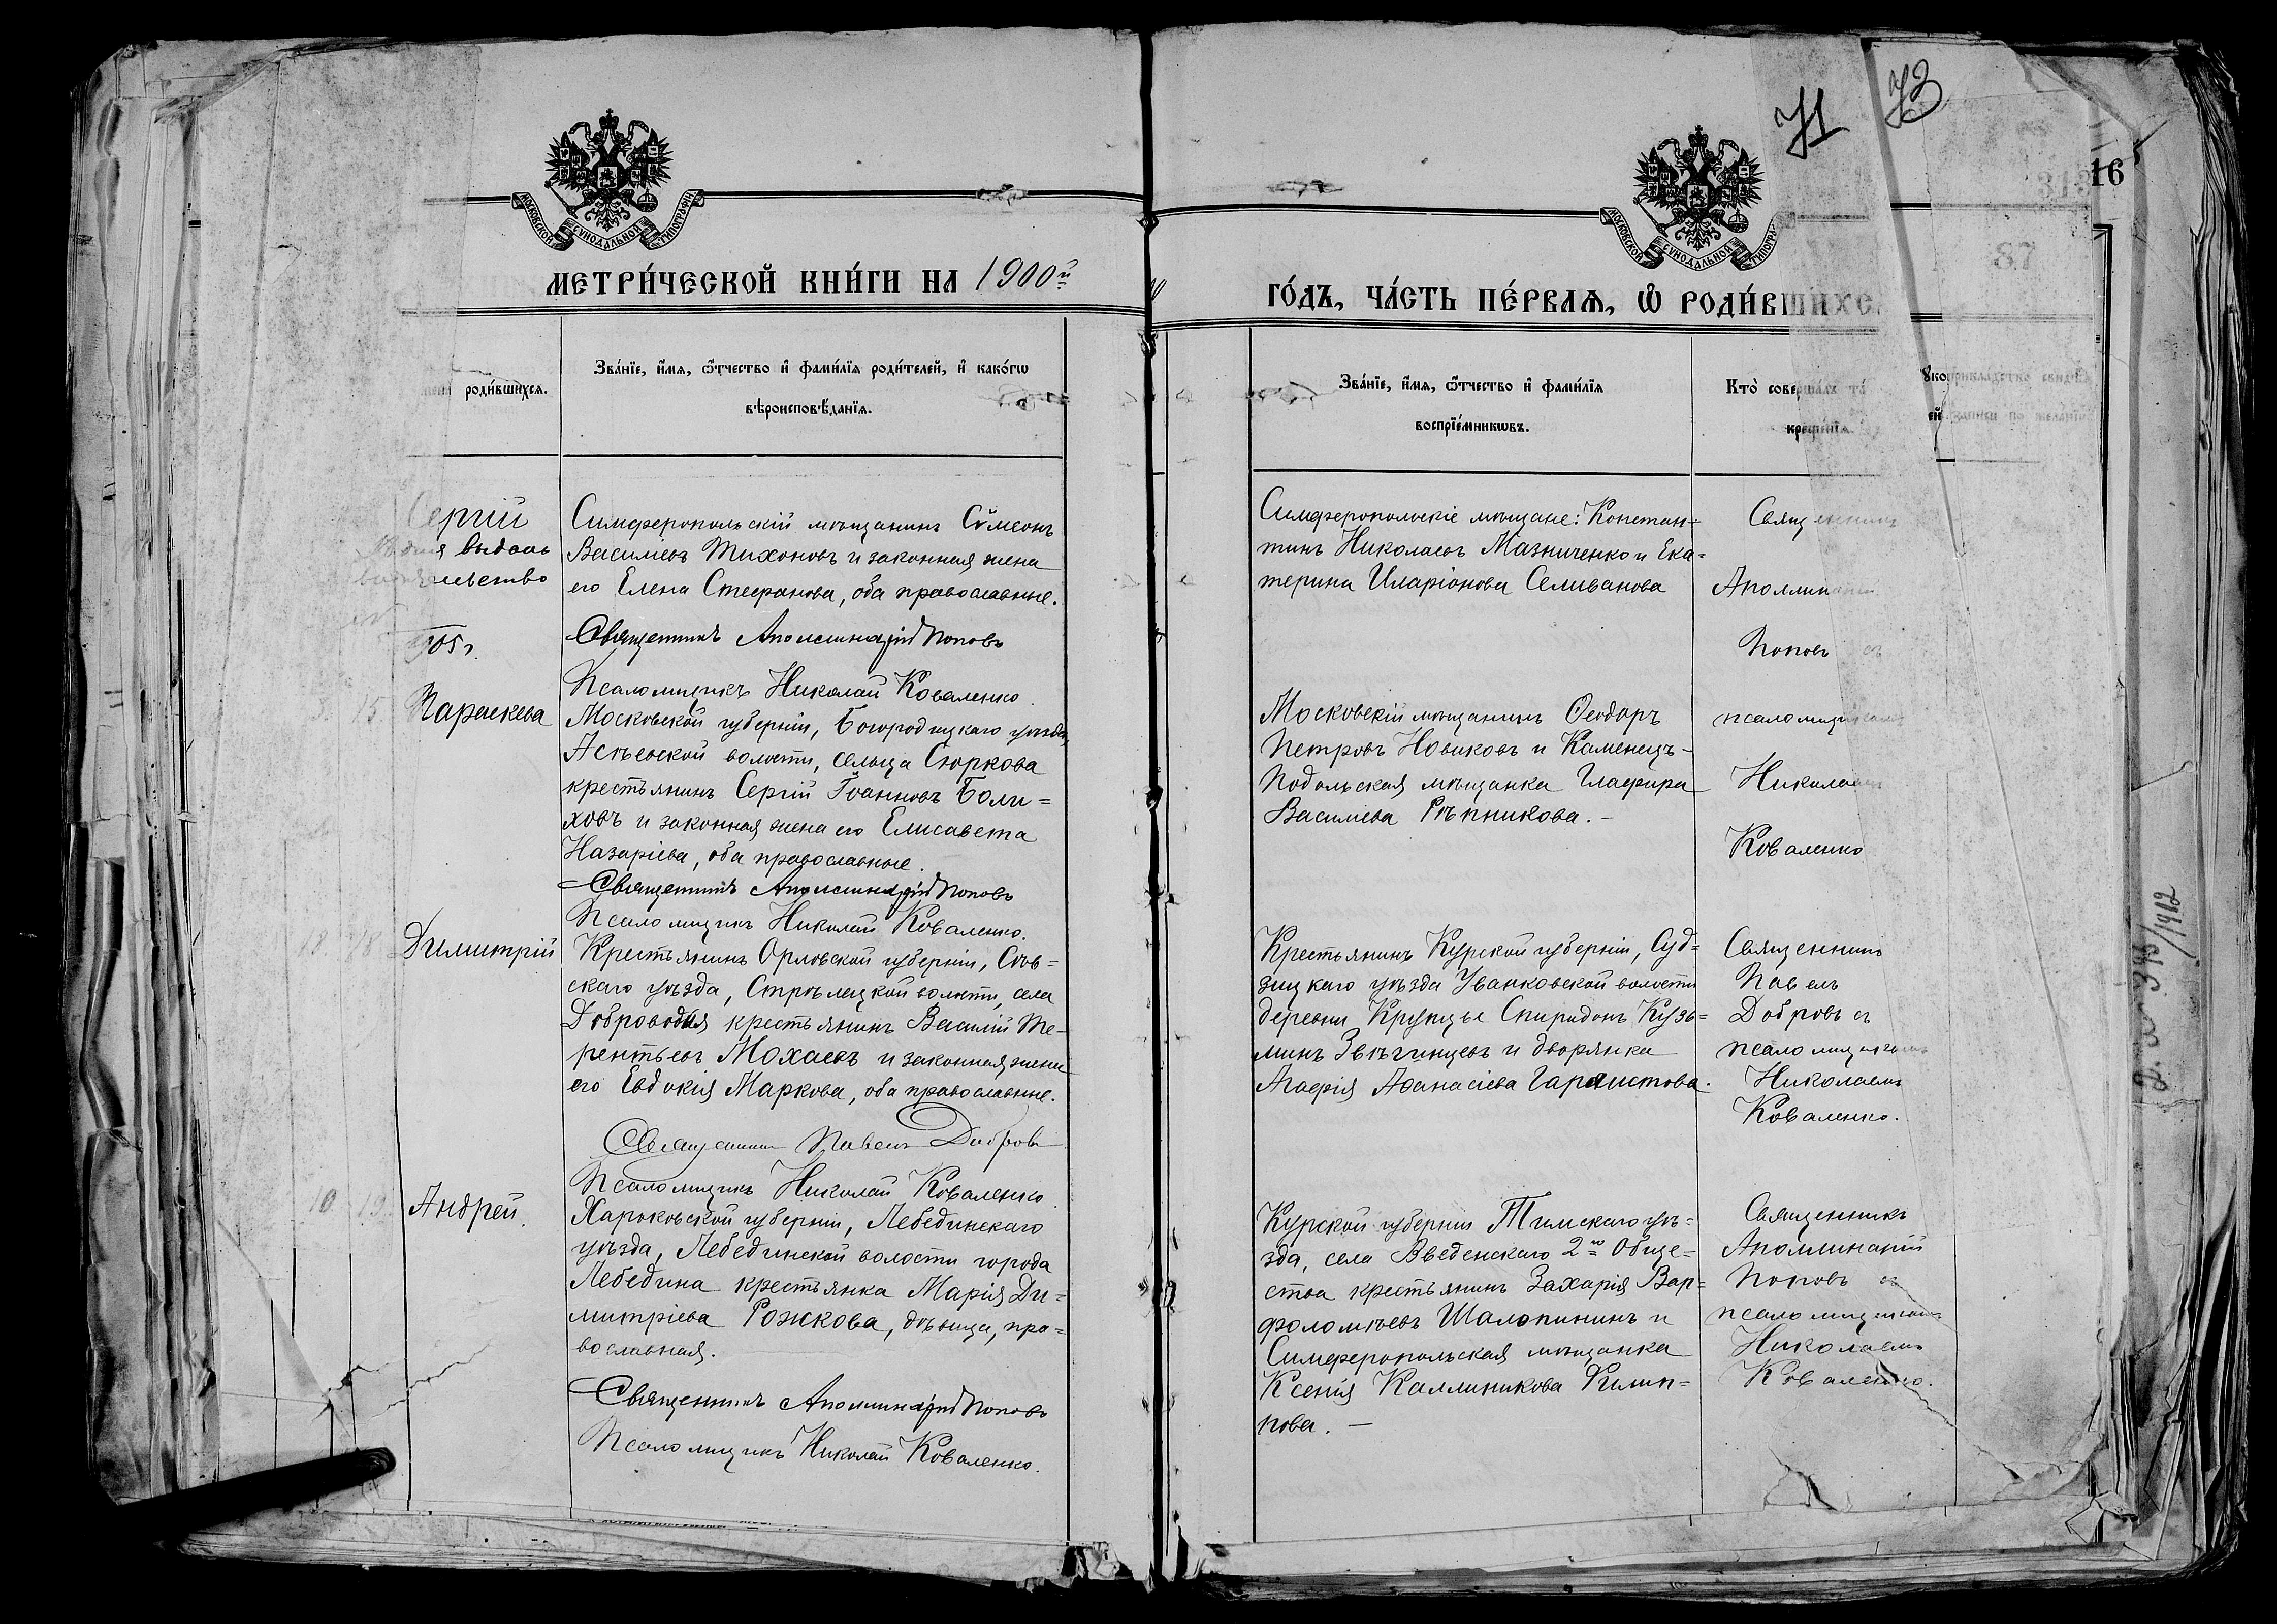 71
73
16
87
МОСКОВСКОЙ СУНОДАЛЬНОЙ ТИПОГРАФІИ
МОСКОВСКОЙ СУНОДАЛЬНОЙ ТИПОГРА
МЕТРИ́ЧЕСКОЙ КНИ́ГИ НА 1900й
ГО́ДЪ, ЧА́СТЬ ПЕ́РВАѦ, Ѡ҆ РОДИ́ВШИХСѦ
роди́вшихсѧ.
Зва́нїе, и҆́мѧ, ѻ҆́тчество и҆ фами́лїѧ роди́телей, и҆ како́гѡ
вѣроисповѣ́данїѧ.
Зва́нїе, и҆́мѧ, ѻ҆́тчество и҆ фами́лїѧ
воспрїе́мникѡвъ.
Кто̀ соверша́лъ та́
креще́нїѧ.
Сергій
выдано
905 г.
Симферопольскій мѣщанинъ Сѵмеонъ
Василіевъ Тихоновъ и законная жена
его Елена Стефанова, оба православные.
Священникъ Аполлинарій Поповъ
Псаломщикъ Николай Коваленко
Симферопольскіе мѣщане: Констан-
тинъ Николаевъ Мазниченко и Ека-
терина Иларіонова Селиванова
Священникъ
Аполлинарій
Поповъ съ
псаломщикомъ
Николаемъ
Коваленко
15
Параскева
Московской губерніи, Богородицкаго уѣзда,
волости, сельца Сюркова
крестьянинъ Сергій Іоанновъ Боли-
ховъ и законная жена его Елисавета
Назаріева, оба православные.
Священникъ Аполлинарій Поповъ
Псаломщикъ Николай Коваленко.
Московскій мѣщанинъ Ѳеодоръ
Петровъ Новиковъ и Каменецъ-
Подольская мѣщанка Глафира
Василіева Рѣпникова. —
18 18
Димитрій
Крестьянинъ Орловской губерніи, Сѣв-
скаго уѣзда, Стрѣлецкой волости, села
Доброводья крестьянинъ Василій Те-
рентьевъ Мохаевъ и законная жена
его Евдокія Маркова, оба православные.
Священникъ Павелъ Добровъ
Псаломщикъ Николай Коваленко
Крестьянинъ Курской губерніи, Суд-
жицкаго уѣзда Уванковской волости
деревни Крупцье Спиридонъ Кузь-
минъ Звѣгинцевъ и дворянка
Агафія Аѳанасіева
Священникъ
Павелъ
Добровъ съ
псаломщикомъ
Николаемъ
Коваленко.
10 19
Андрей.
Харьковской губерніи, Лебединскаго
уѣзда, Лебединской волости города
Лебедина крестьянка Марія Ди-
митріева Рожкова, дѣвица, пра-
вославная.
Священникъ Аполлинарій Поповъ
Псаломщикъ Николай Коваленко.
Курской губерніи Тимскаго уѣ-
зда, села Введенскаго 2го Обще-
ства крестьянинъ Захарія Вар-
фоломѣевъ Шалопининъ и
Симферопольская мѣщанка
Ксенія Каллиникова Филип-
пова. —
Священникъ
Аполлинарій
Поповъ съ
псаломщикомъ
Николаемъ
Коваленко.